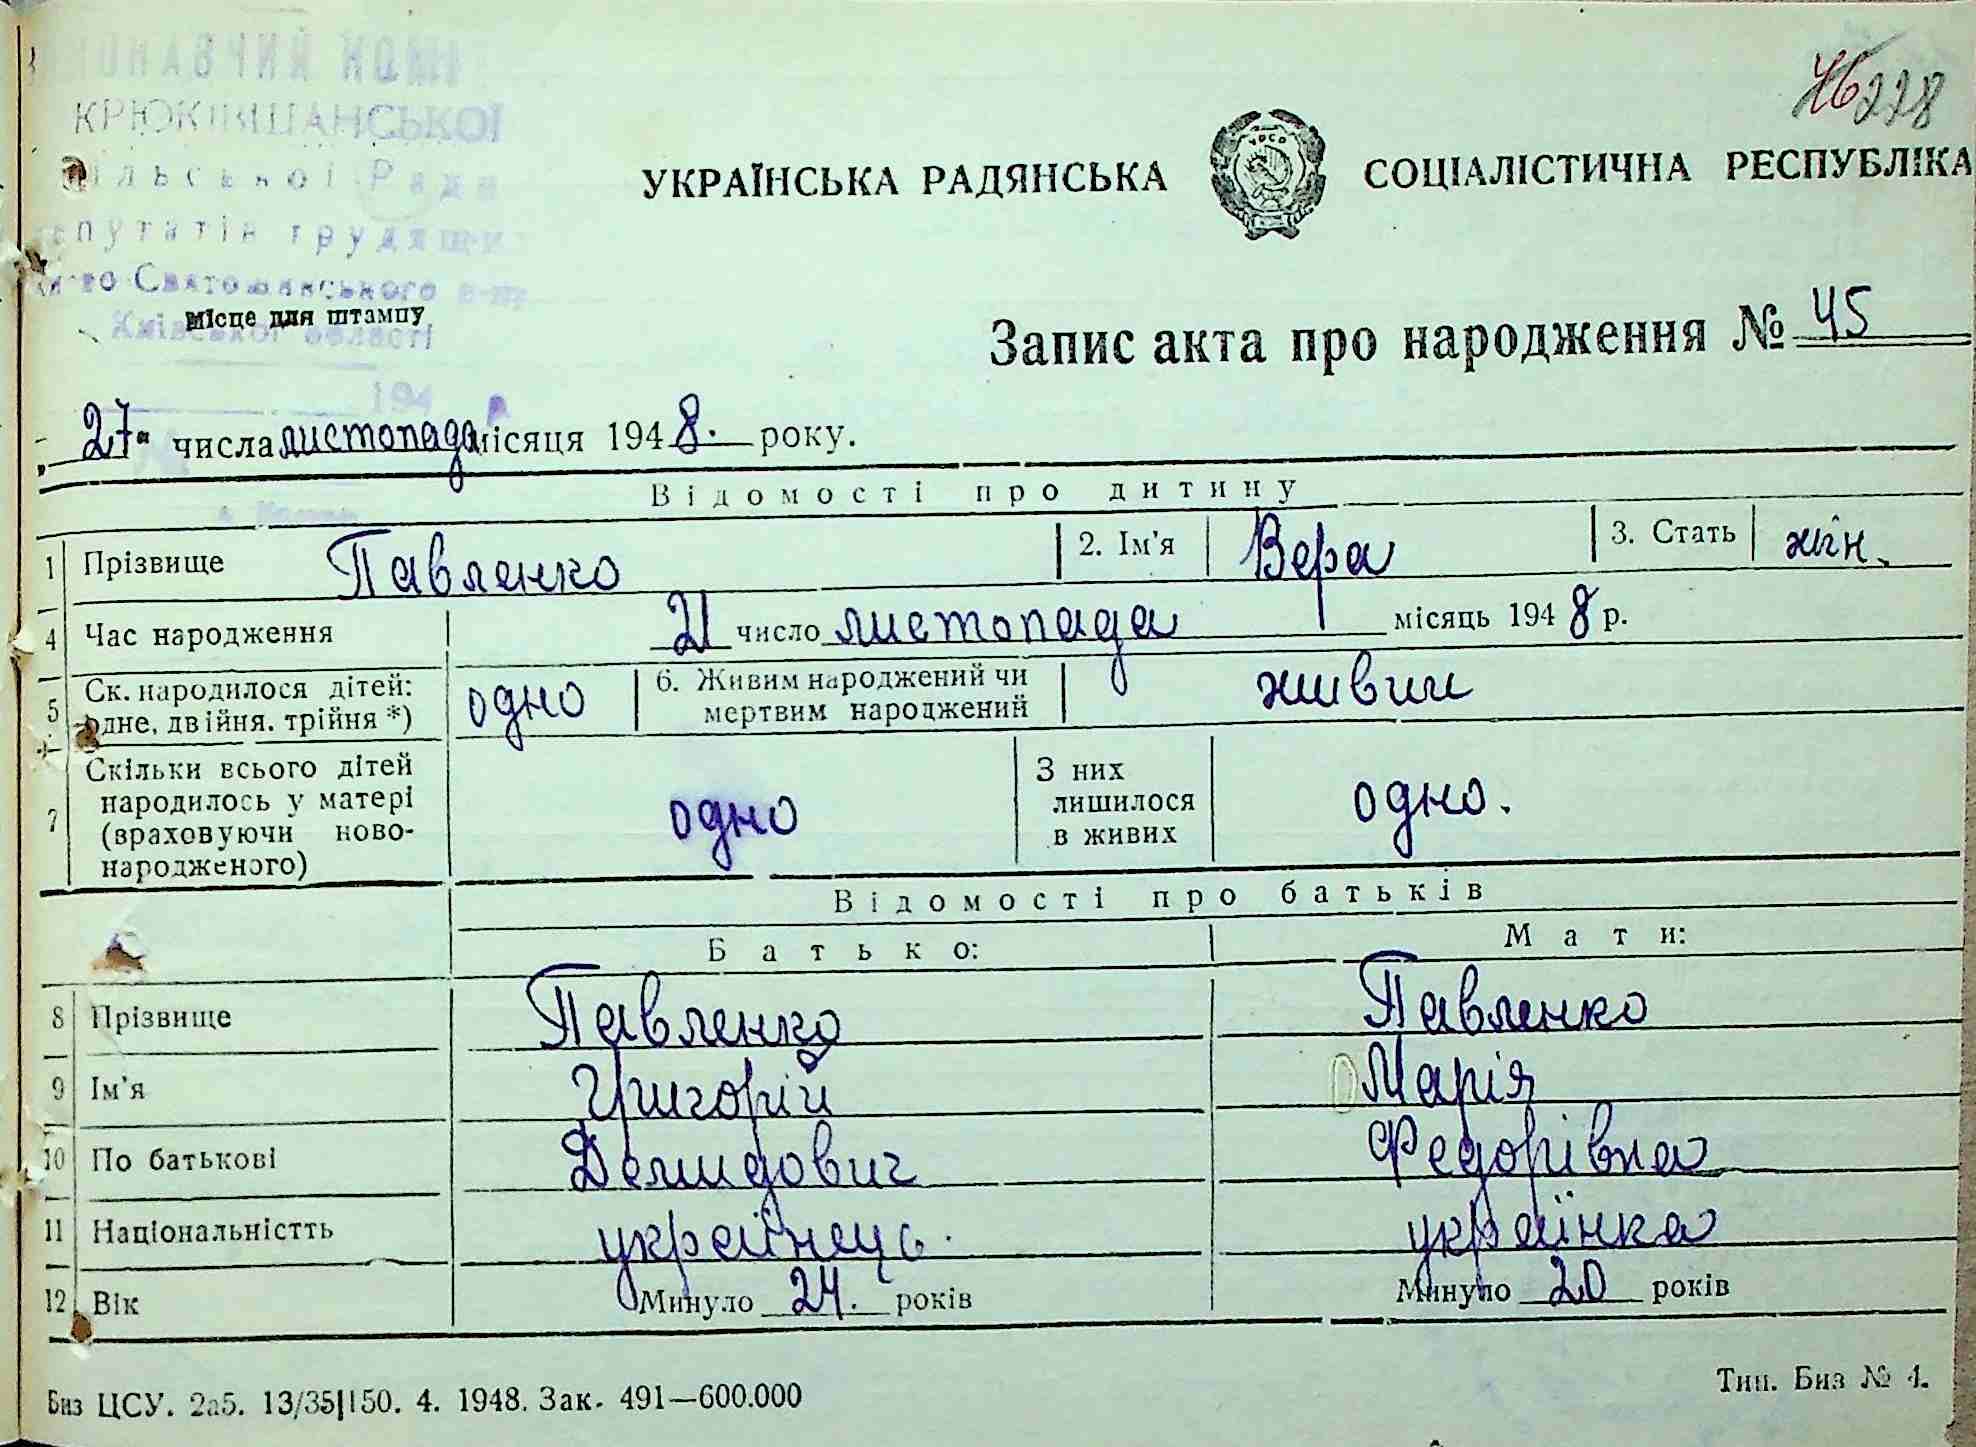 КРЮКІВЩАНСЬКОЇ
сільської Ради
депутатів трудящих
Києво Святошинського р-ну
Київської області
місце для штампу
194
46 228
УКРАЇНСЬКА РАДЯНСЬКА СОЦІАЛІСТИЧНА РЕСПУБЛІКА
Запис акта про народження № 45
„27“ числа листопада місяця 1948. року.
Відомості про дитину
1 Прізвище Павленко 2. Ім'я Вера 3. Стать жін.
4 Час народження 21 число листопада місяць 1948 р.
5 Ск. народилося дітей: одне, двійня. трійня *) одно 6. Живим народжений чи мертвим народжений живим
7 Скільки всього дітей народилось у матері (враховуючи ново-народженого) одно З них лишилося в живих одно.
Відомості про батьків
Батько: Мати:
8 Прізвище Павленко Павленко
9 Ім'я Григорій Марія
10 По батькові Демидович Федорівна
11 Національністть українець. українка
12 Вік Минуло 24. років Минуло 20 років
Биз ЦСУ. 2а5. 13/35|150. 4. 1948. Зак. 491—600.000
Тип. Биз № 4.